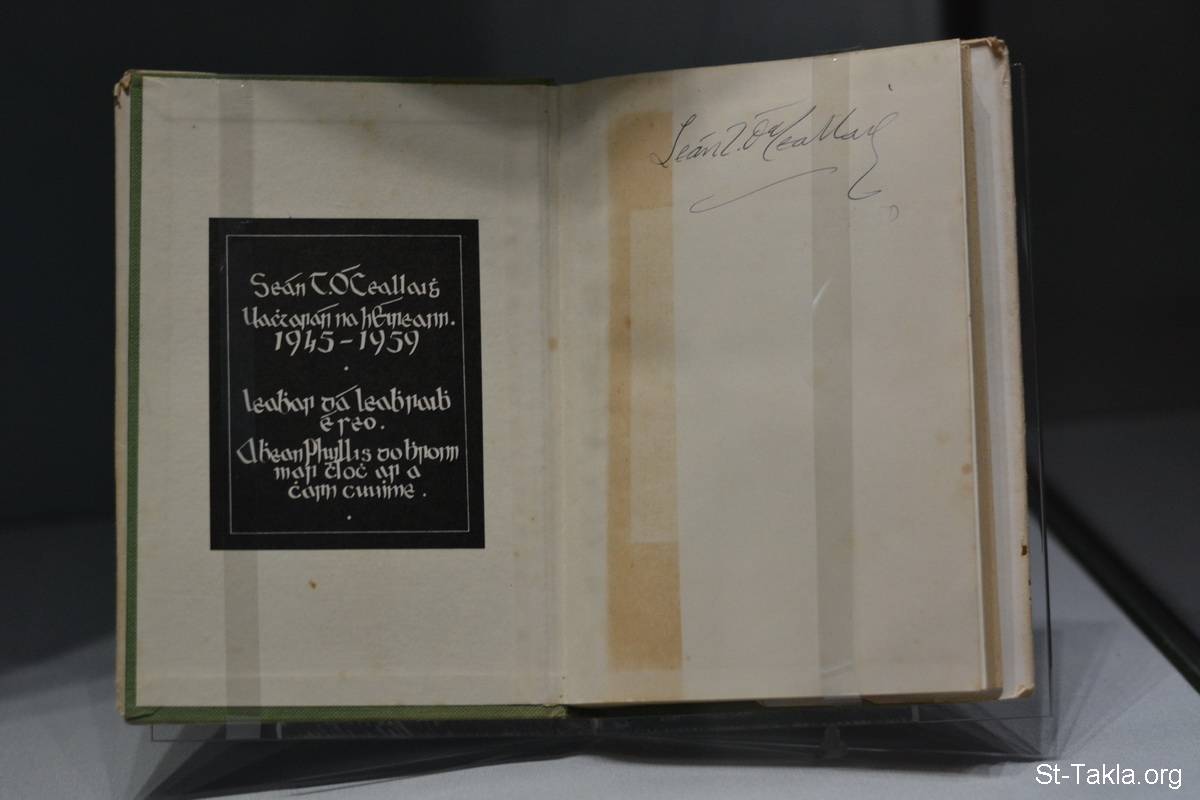 Seán T. Ó Ceallaiġ
Uaċtarán na hÉireann.
1945 – 1959
Leaḃar dá leaḃraiḃ
é seo.
A ḃean Phyllis do ḃronn
mar ċloċ ar a
ċarn cuiṁne.
Seán T. Ó Ceallaiġ
St-Takla.org